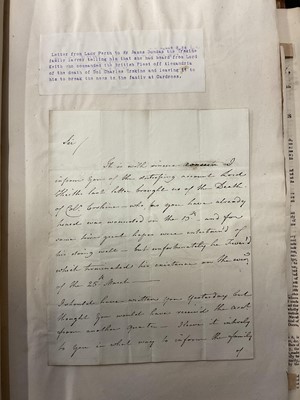 Letter from Lady Perth to Mr James Dundas the Erskine
family Lawyer telling him that she had heard from Lord
Keith who commanded the British Fleet off Alexandria
of the death of Col Charles Erskine and leaving it to
him to break the news to the family at Cardross.
Sir/
It is with sincere concern I
inform you of the distressing account Lord
Keiths last letter brought us of the Death
of Coll. Erskine – who as you have already
heard was wounded on the 13th and for
some time great hopes were entertained of
his doing well – but unfortunately he
which terminated his existence on the
of the 25th March –
I should have written you Yesterday but
thought You would have received the
from another quarter – I leave it intirely
to You in what way to inform the family
of